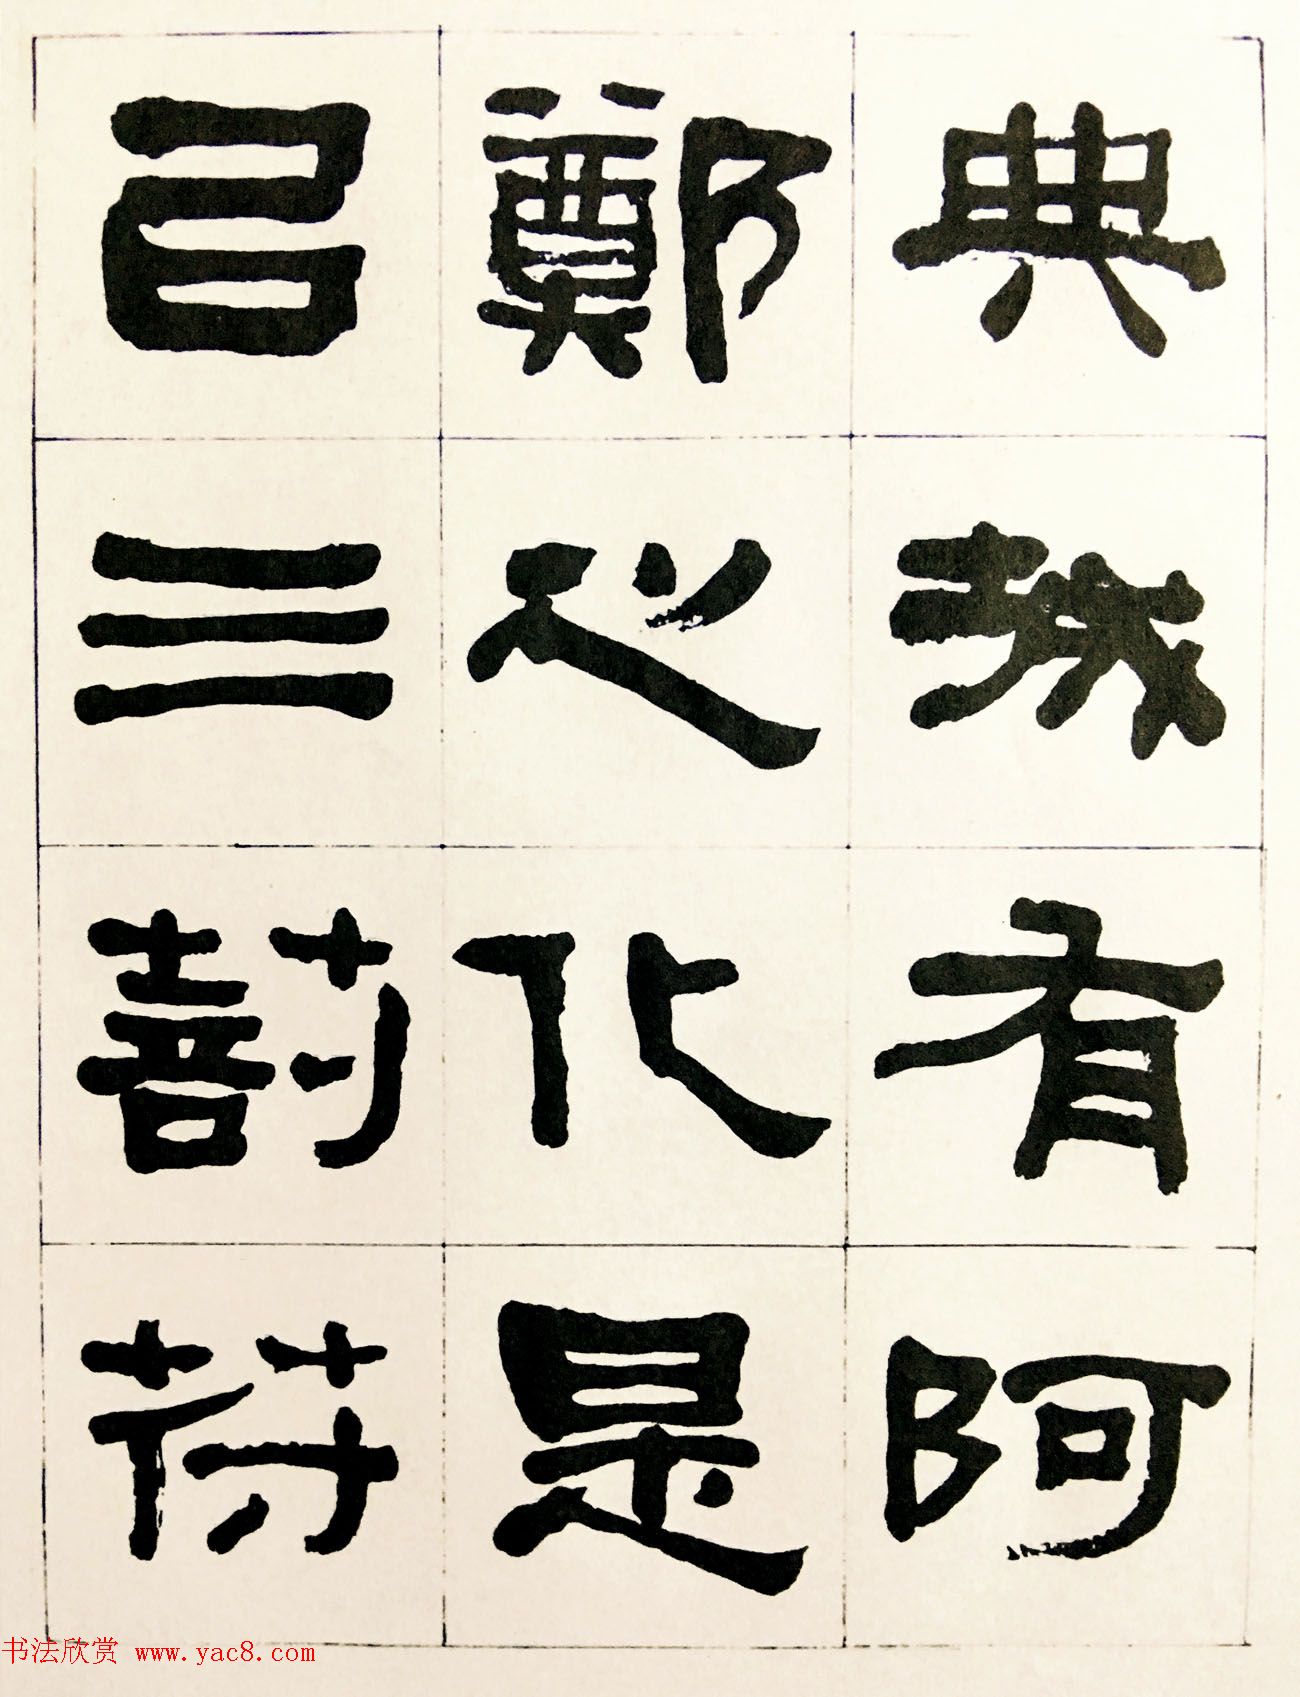 典城有阿
鄭之化是
㠯三剖符
书法欣赏 www.yac8.com